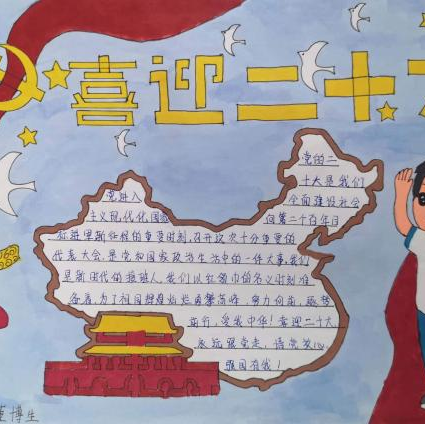 喜迎二十大
党的二
十大是我们
党进入 全面建设社会
主义现代化国家 向第二个百年目
标进军新征程的重要时刻,召开这次十分重要的
代表大会,是党和国家政治生活中的一件大事,我们
是新时代的接班人,我们以红领巾的名义时刻准
备着,为了祖国 灿烂勇攀高峰,努力向前,逐梦
前行,爱我中华!喜迎二十大
永远跟党走,请党放心,
强国有我!
博生